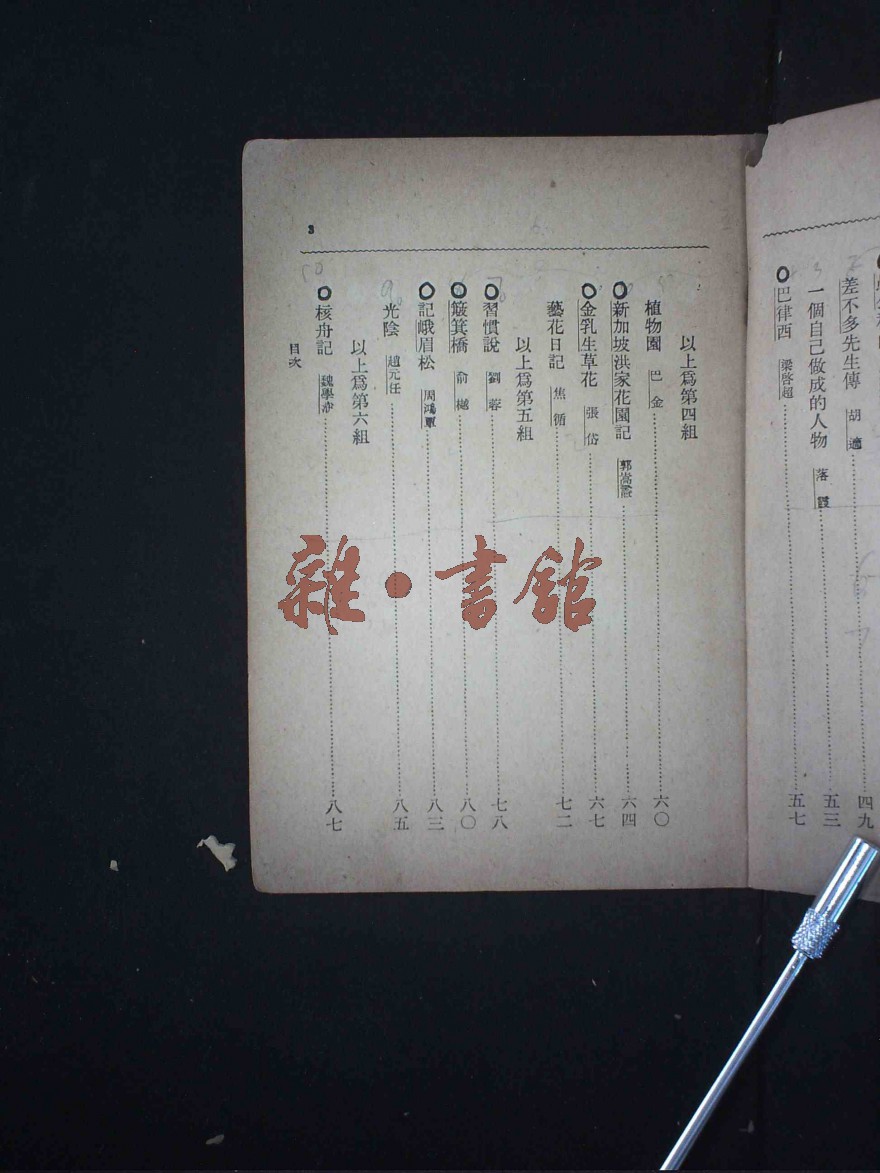 差不多先生傳 胡適 四九
一個自己做成的人物 落霞 五三
○巴律西 梁啓超 五七
3
以上爲第四組
植物園 巴金 六〇
○新加坡洪家花園記 郭嵩燾 六四
○金乳生草花 張岱 六七
藝花日記 焦循 七二
以上爲第五組
○習慣說 劉蓉 七八
○簸箕橋 俞樾 八〇
○記峨眉松 周鴻覃 八三
光陰 趙元任 八五
以上爲第六組
○核舟記 魏學洢 八七
目次
雜•書館